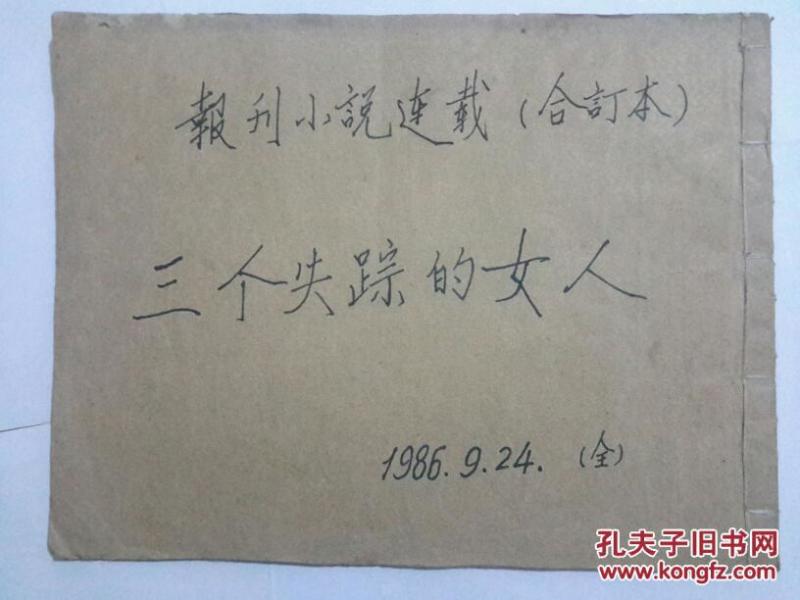 報刊小説连載（合訂本）
三个失踪的女人
1986.9.24.（全）
孔夫子旧书网
www.kongfz.com